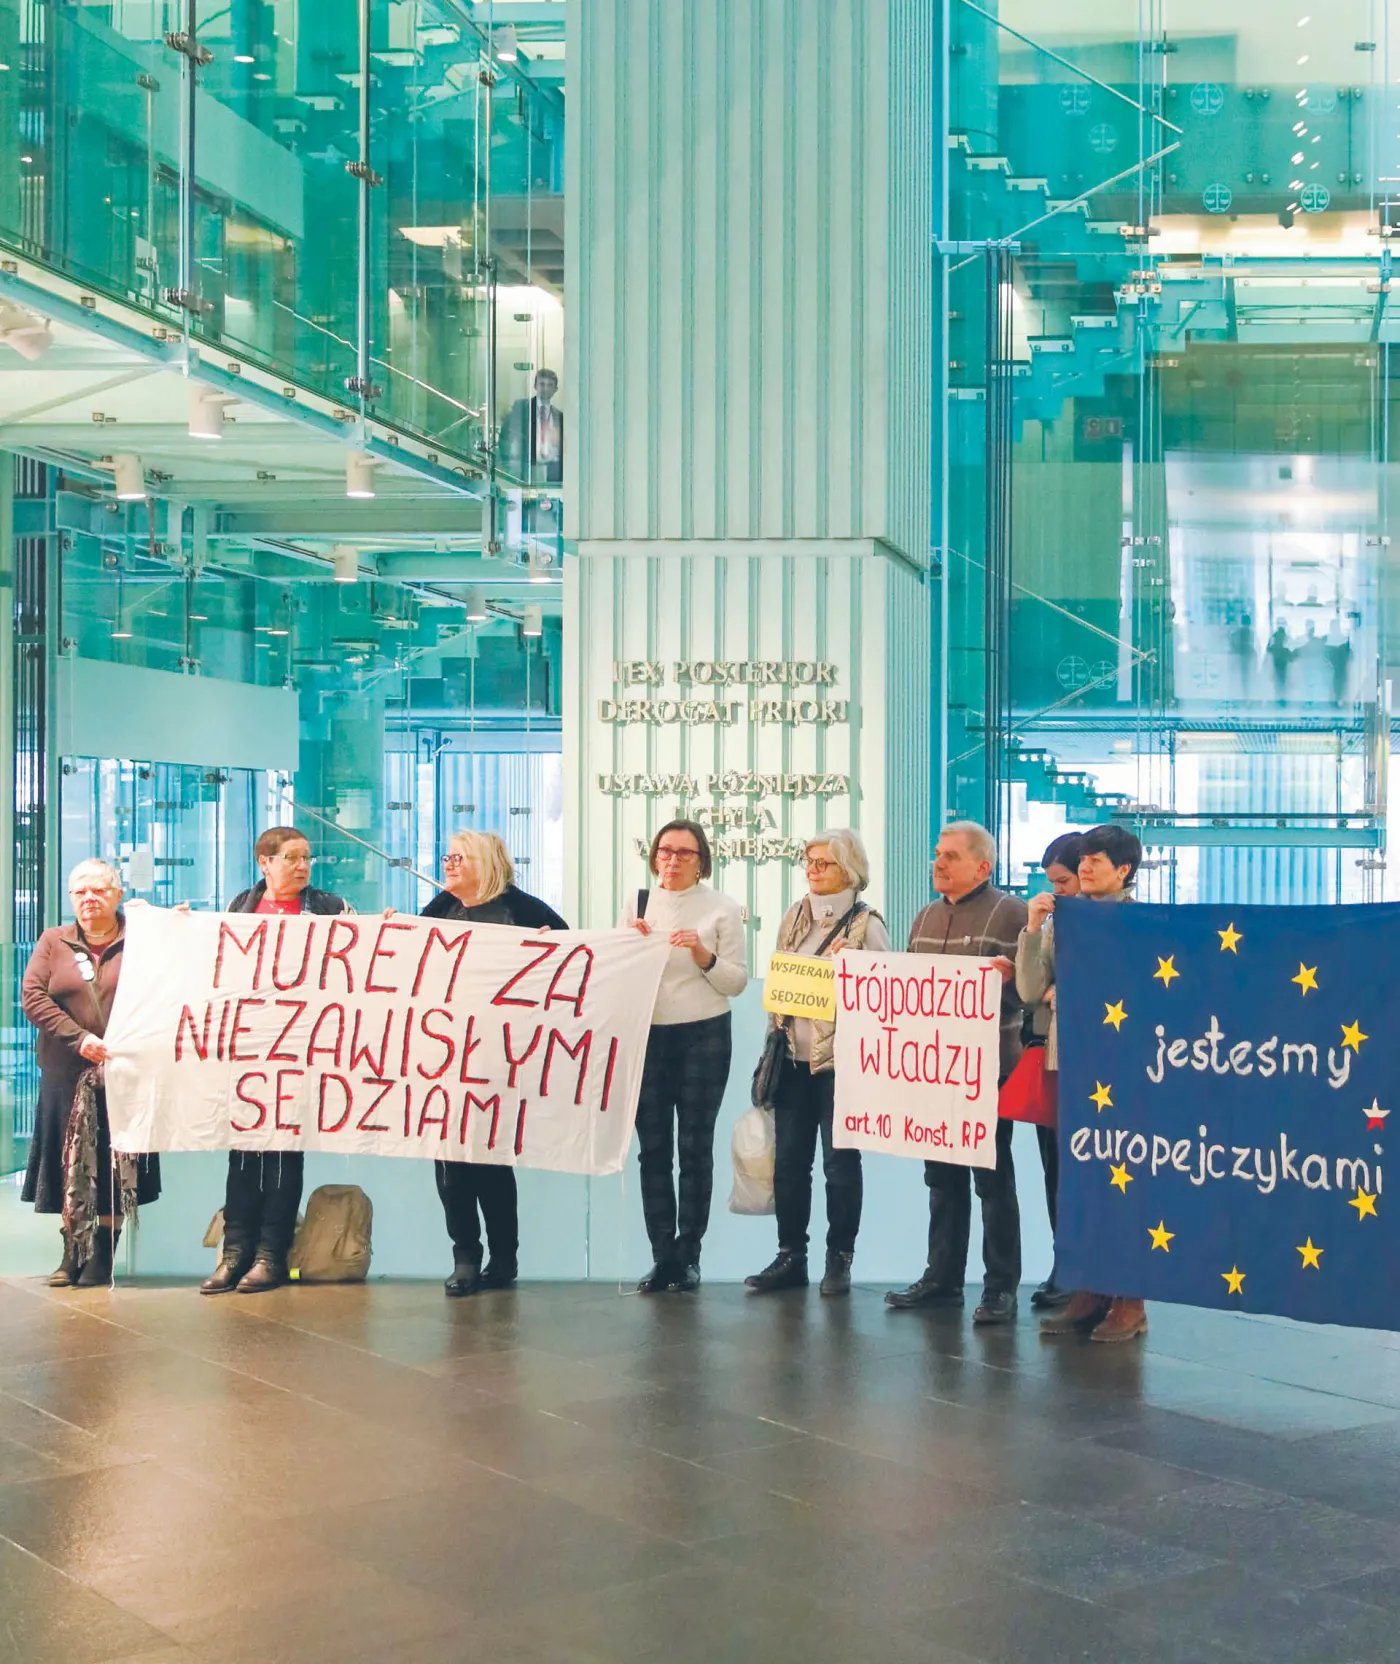 LEX POSTERIOR
DEROGAT PRIORI
USTAWA PÓŹNIEJSZA
UCHYLA
MUREM ZA
NIEZAWISŁYMI
SĘDZIAMI
WSPIERAM
SĘDZIÓW
trójpodział
władzy
art.10 Konst. RP
jesteśmy
europejczykami